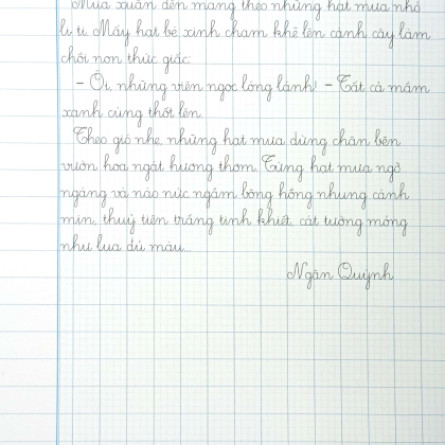 Mưa xuân đến mang theo những hạt mưa nhỏ
li ti. Mấy hạt bé xinh chạm khẽ lên cành cây làm
chồi non thức giấc:
- Ôi, những viên ngọc lóng lánh! - Tất cả mầm
xanh cùng thốt lên.
Theo gió nhẹ, những hạt mưa dừng chân bên
vườn hoa ngát hương thơm. Từng hạt mưa ngỡ
ngàng và náo nức ngắm bông hồng nhung cánh
mịn, thuỷ tiên trắng tinh khiết, cát tường mỏng
như lụa đủ màu.
Ngân Quỳnh